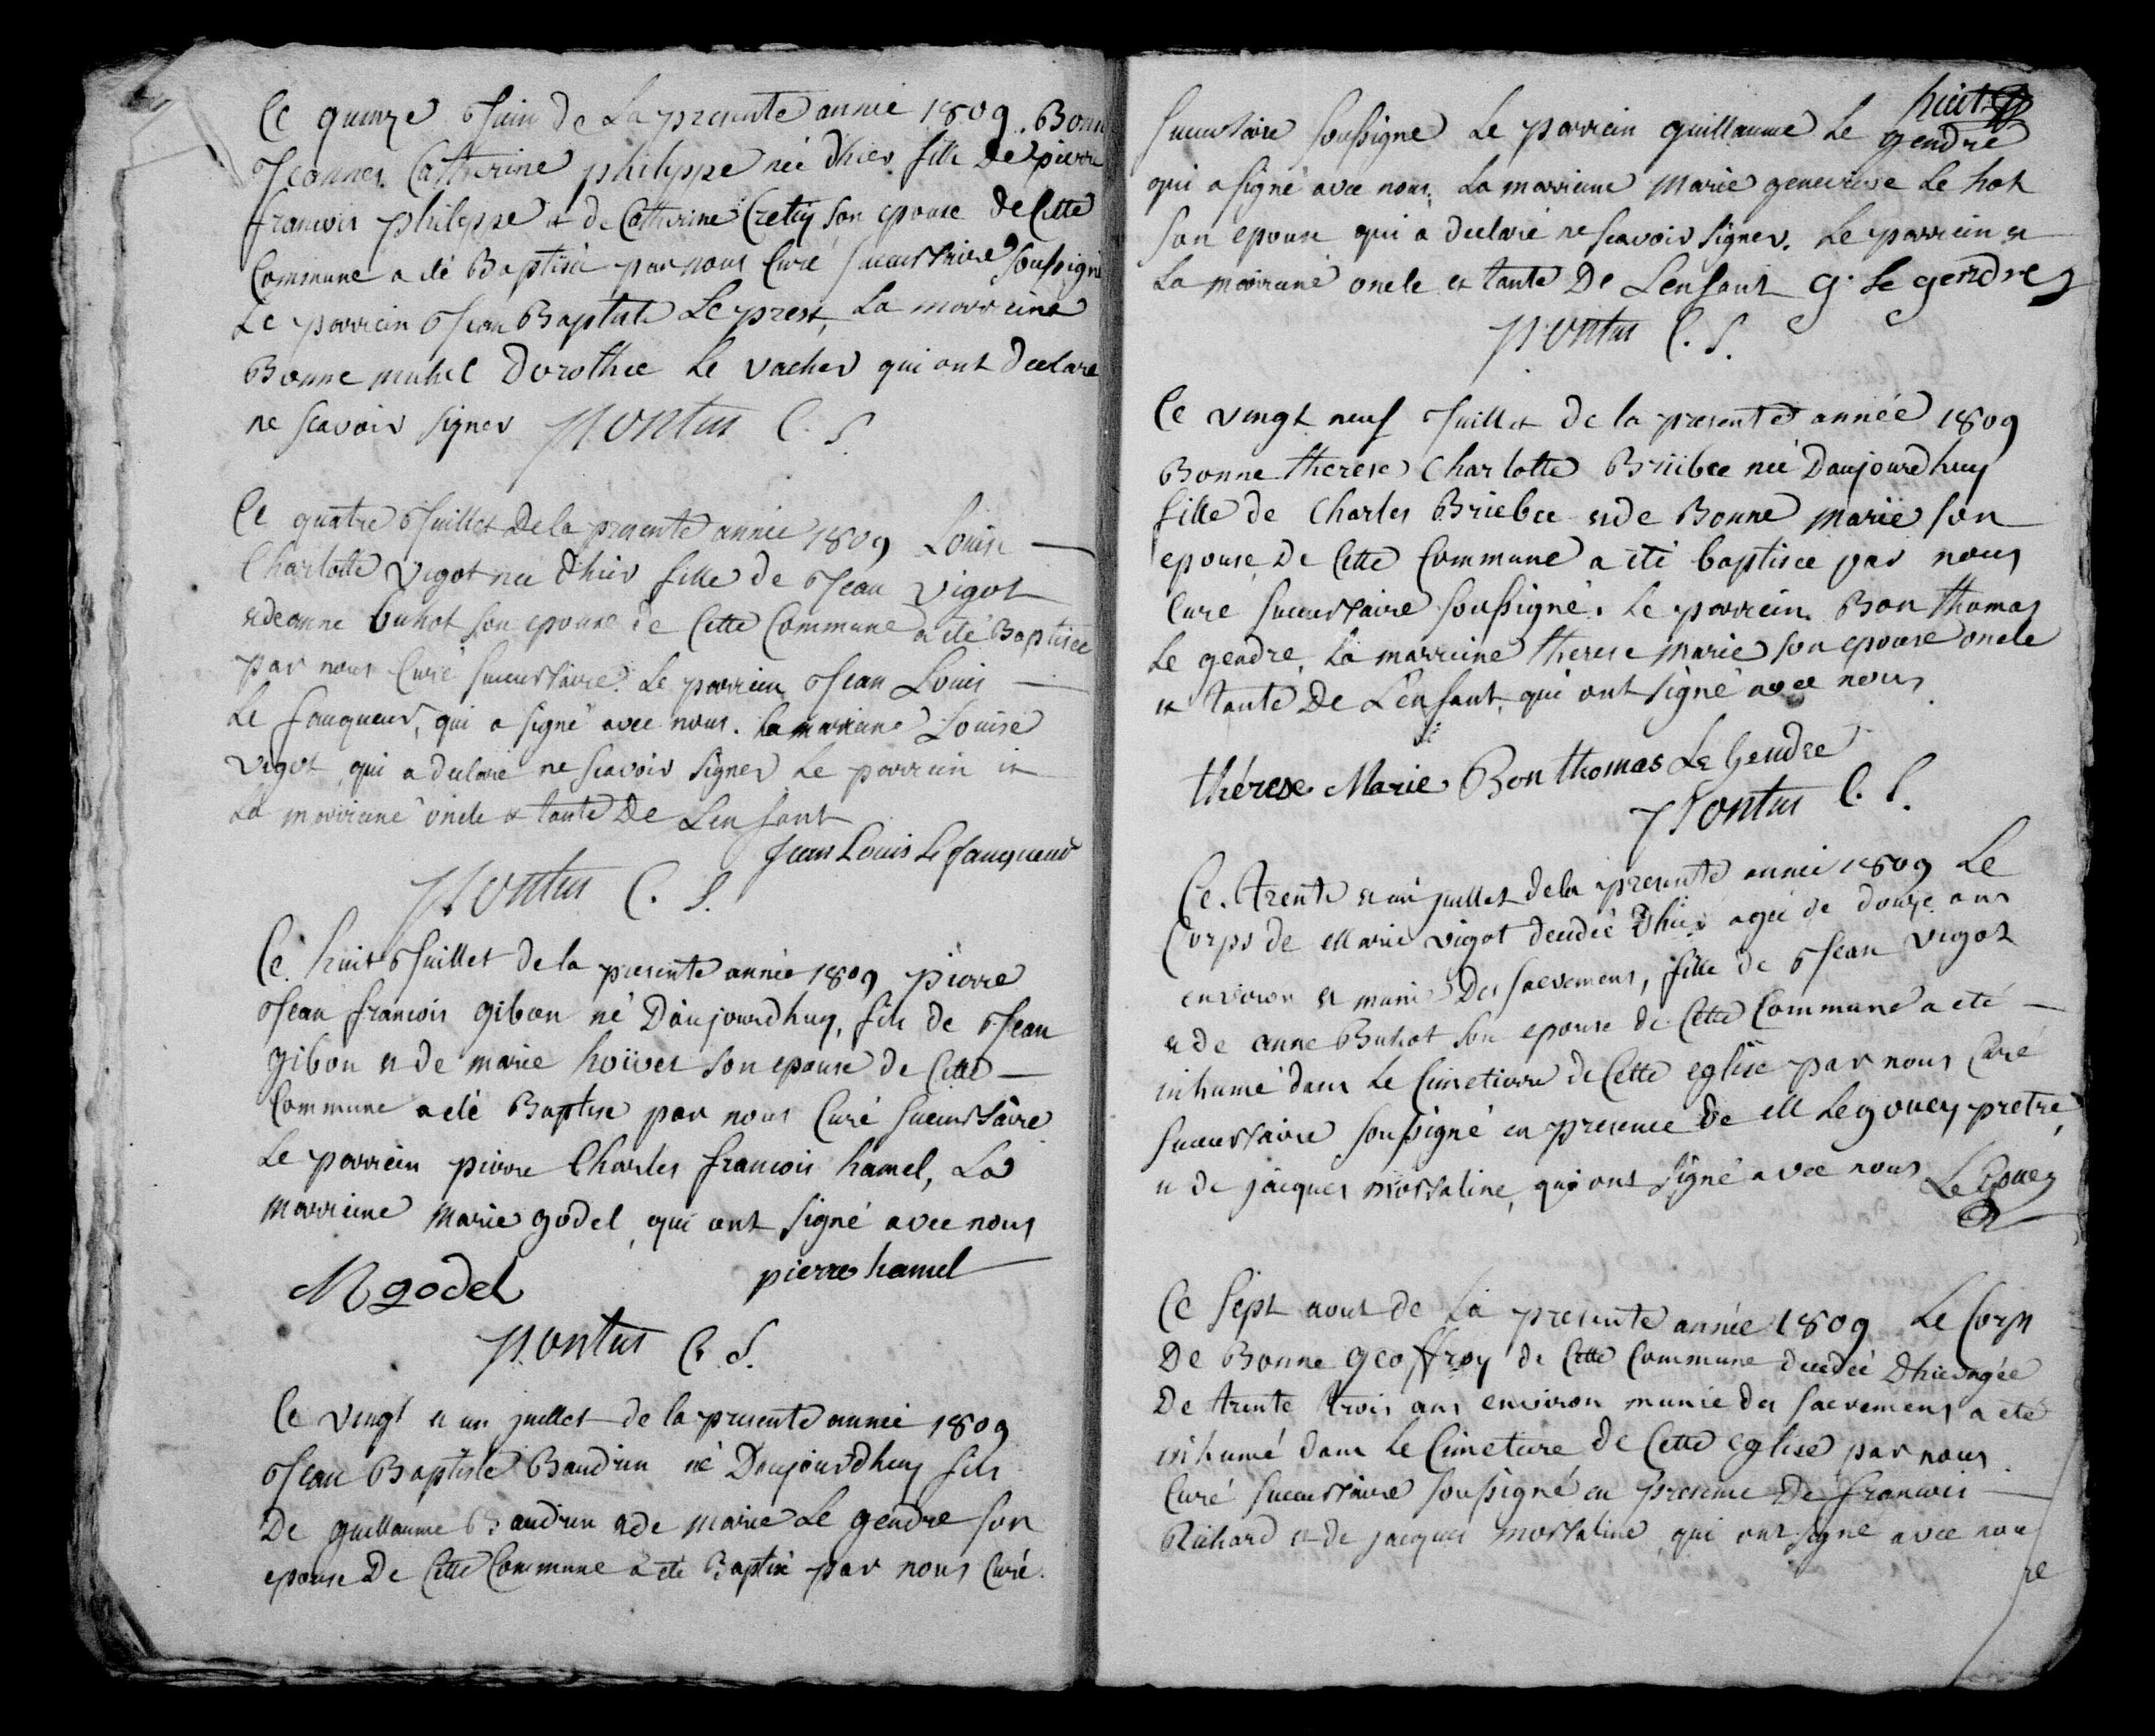 Ce quinze Juin de La presente année 1809. Bonne
Jeanne Catherine philippe née d'hier fille De pierre
francois philippe et de Catherine Cretey son epouse De Cette
Commune a été Baptisée par nous Curé succursaire soussigné
Le parrein Jean Baptiste Le prest, La marreine
Bonne michel Dorothée Le vacher qui ont declaré
ne scavoir signer pontus C. S.
Ce quatre Juillet De la presente année 1809 Louise
Charlotte vigot née d'hier fille de Jean vigot
et de anne buhot son epouse de Cette Commune a été Baptisée
par nous Curé succursaire. Le parrein Jean Louis
Le fauqueur, qui a signé avec nous. La marreine Louise
vigot qui a declaré ne scavoir signer Le parrein et
La marreine oncle et tante De Lenfant
Jean Louis Le fauqueur
pontus C. S.
Ce huit Juillet de la presente année 1809 pierre
Jean francois gibon né Daujourdhuy, fils de Jean
gibon et de marie hoüvet son epouse de Cette
Commune a été Baptisé par nous Curé succursaire
Le parrein pierre Charles francois hamel, La
marreine marie godel qui ont signé avec nous
M godel pierre hamel
pontus C. S.
Ce vingt et un juillet de la presente année 1809
Jean Baptiste Baudrun né Daujourdhuy fils
De guillaume Baudrun et de marie Le gendre son
epouse De Cette Commune a été Baptisé par nous Curé
huit
succursaire soussigné Le parrein guillaume Le gendre
qui a signé avec nous, La marreine Marie genevieve Le hot
son epouse qui a declaré ne scavoir signer. Le parrein et
La marreine oncle et tante De Lenfant g. le gendre
pontus C. S.
Ce vingt neuf Juillet de la presente année 1809
Bonne therese Charlotte Briebec née Daujourdhuy
fille de Charles Briebec et de Bonne marie son
epouse De Cette Commune a été baptisée par nous
Curé succursaire soussigné. Le parrein Bon thomas
Le gendre, La marreine therese marie son epouse oncle
et tante De L'enfant, qui ont signé avec nous
thérese Marie Bon thomas Le Gendre
pontus C. S.
Ce trente et un juillet de la presente année 1809 Le
Corps de Marie vigot decedée d'hier agée de douze ans
environ et munie Des sacremens, fille de Jean vigot
et de anne Buhot son epouse de Cette Commune a été
inhumé dans Le Cimetierre de Cette eglise par nous Curé
succursaire soussigné en presence de M Le gouey pretre,
et de jacques mossaline, qui ont signé avec nous Le Gouey
Ce sept aout de La presente année 1809 Le Corps
De Bonne geoffroy de Cette Commune decedée d'hier agée
De trente trois ans environ munie des sacremens a été
inhumé dans Le Cimetiere de Cette eglise par nous
Curé succursaire soussigné en presence De francois
Richard et de jacques mossaline qui ont signé avec nous